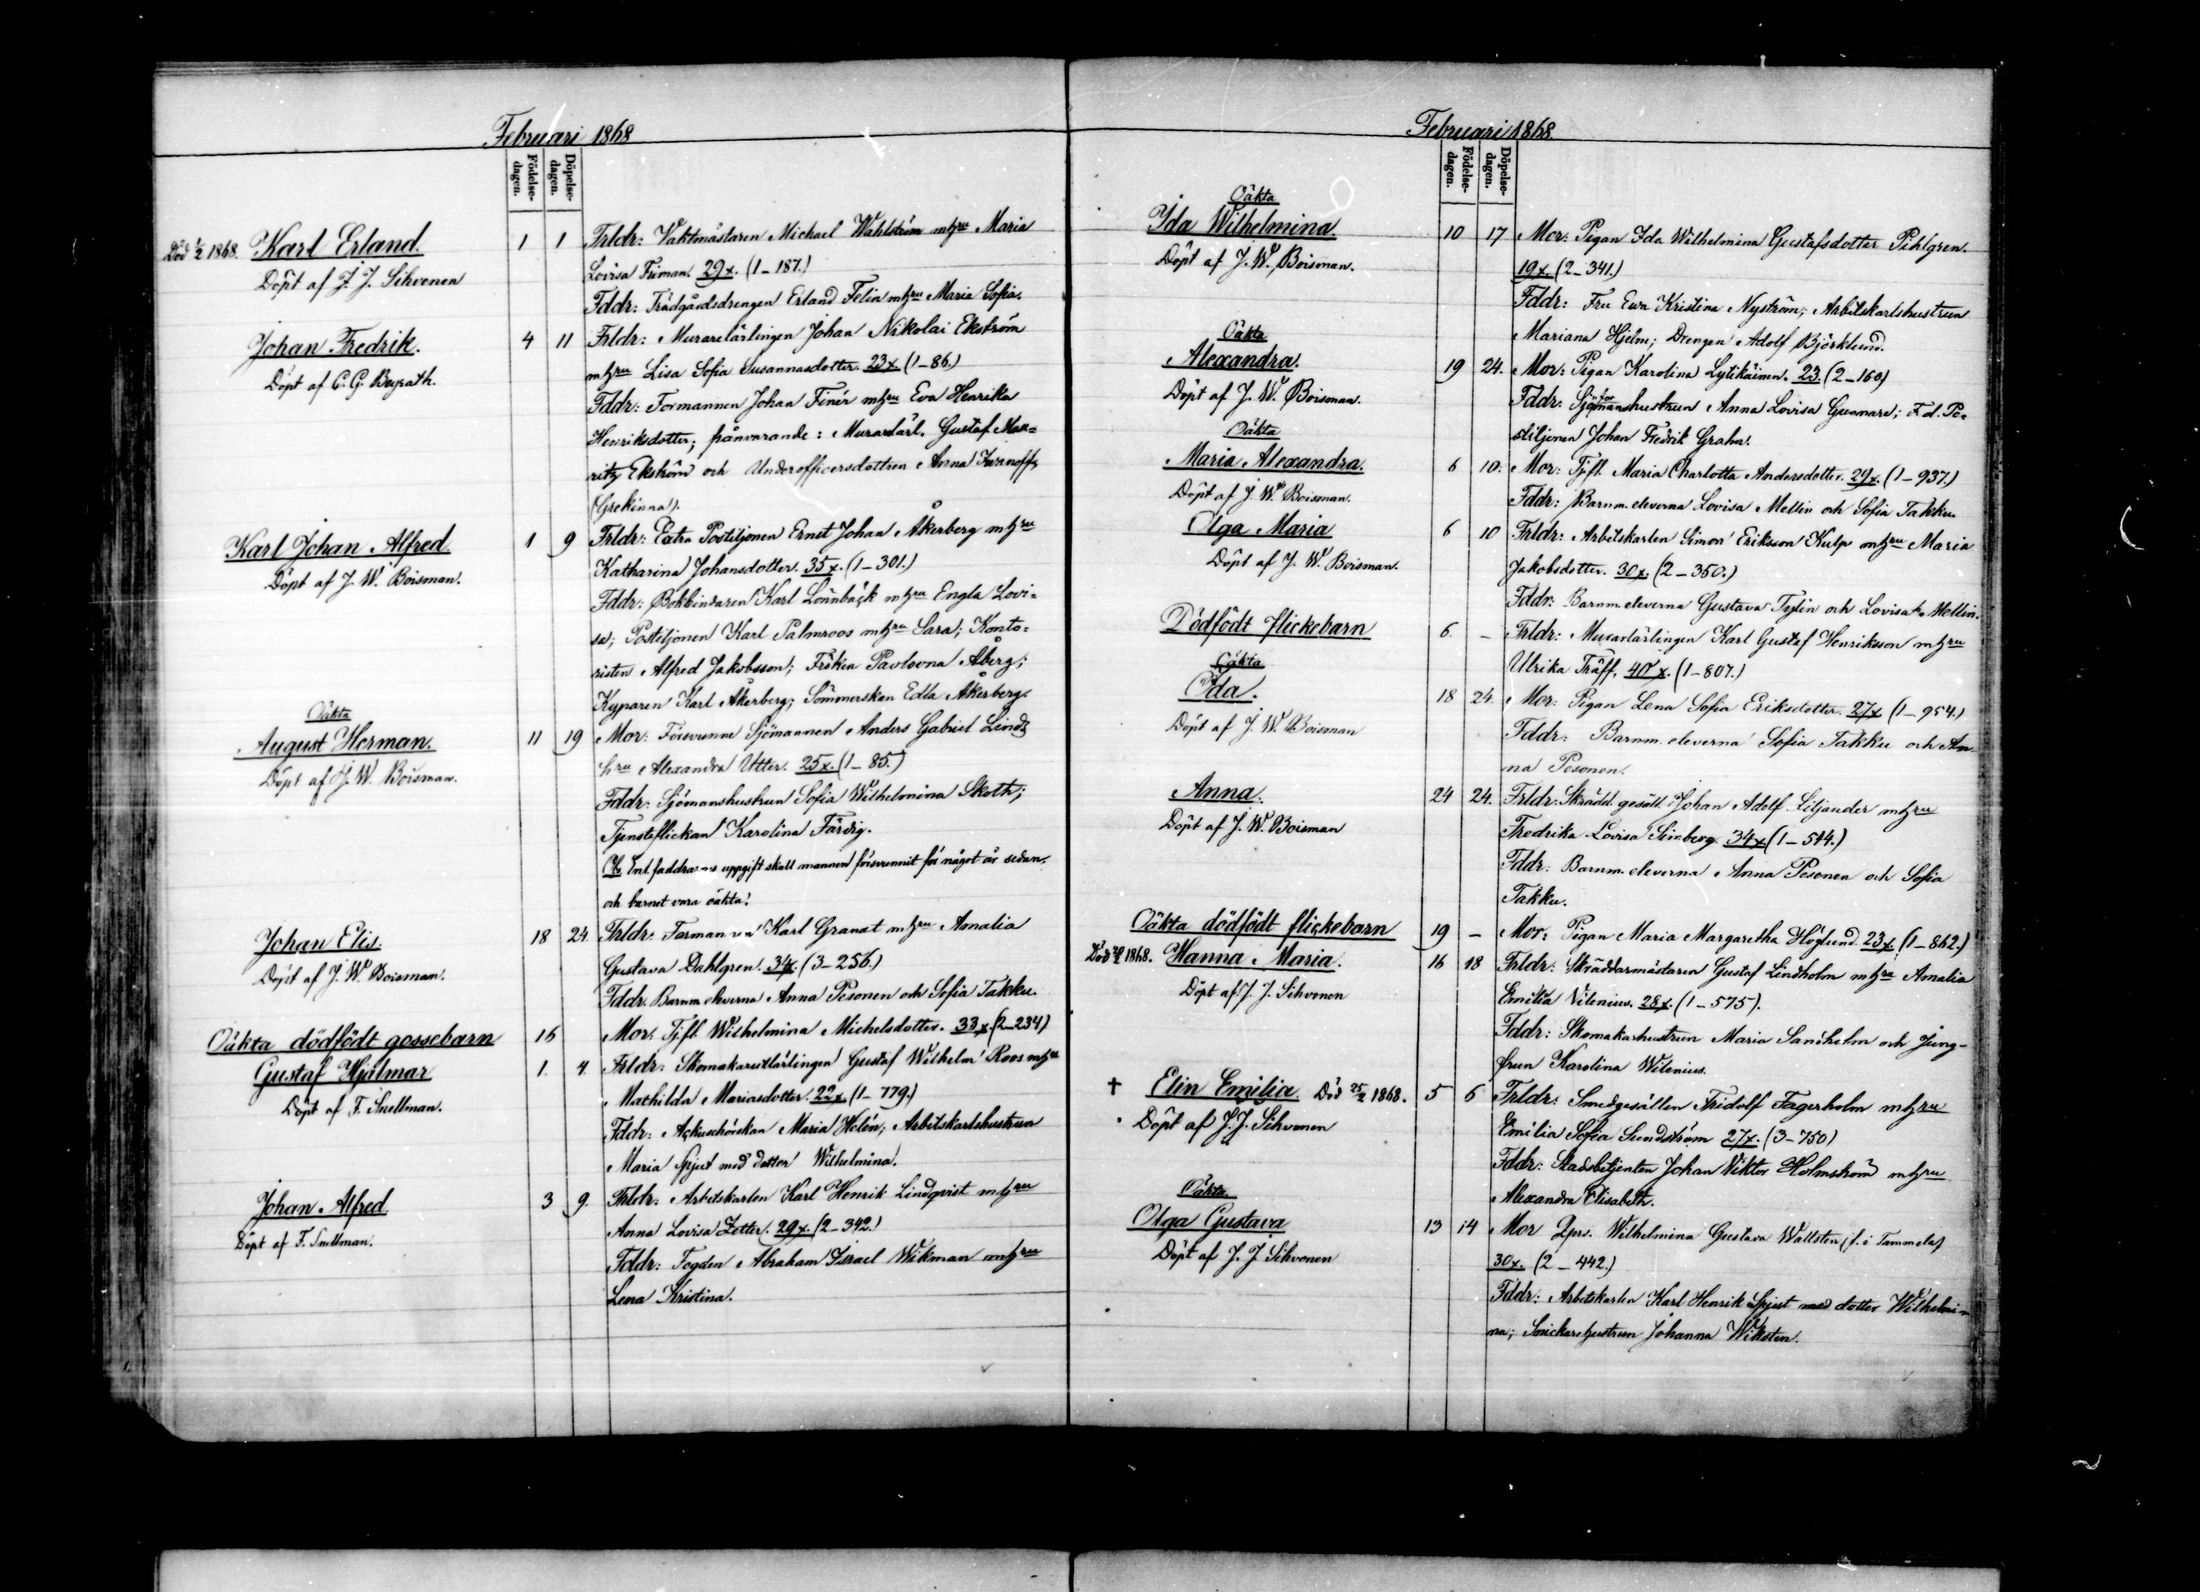 Februari 1868
Födelse-dagen. Döpelse-dagen.
Död 1/2 1868. Karl Erland. 1 1 Frldr: Vaktmästaren Michael Wahlström m hru Maria
Döpt af J. J. Sihvonen Lovisa Friman. 29 x. (1–187.)
Fddr: Trädgårdsdrengen Erland Felin m hru Maria Sofia.
Johan Fredrik. 4 11 Frldr: Murarelärlingen Johan Nikolai Ekström
Döpt af C. G. m hru Lisa Sofia Susannasdotter. 23 x. (1–86.)
Fddr: Formannen Johan Finér m hru Eva Henrika
Henriksdotter; frånvarande: Murarelärl. Gustaf Mau=
ritz Ekström och Underofficersdottren Anna Iwanoff
(Grekinna).
Karl Johan Alfred. 1 9 Frldr: Extra Postiljonen Ernst Johan Åkerberg m hru
Döpt af J. W. Boisman. Katharina Johansdotter. 35 x. (1–301.)
Fddr: Bokbindaren Karl Lönnbäck m hru Engla Lovi=
sa; Postiljonen Karl Palmroos m hru Sara; Konto=
risten Alfred Jakobsson; Fröken Pavlovna Åberg;
Kyparen Karl Åkerberg; Sömmerskan Edla Åkerberg.
Oäkta
August Herman. 11 19 Mor: Försvunne Sjömannen Anders Gabriel Linds
Döpt af J. W. Boisman. hru Alexandra Utter. 25 x. (1–85.)
Fddr: Sjömanshustrun Sofia Wilhelmina Skoth;
Tjensteflickan Karolina Färdig.
Enl. faddrarnes uppgift skall mannen försvunnit för något år sedan
och barnet vara oäkta.
Johan Elis. 18 24 Frldr: Formannen Karl Granat m hru Amalia
Döpt af J. W. Boisman. Gustava Dahlgren. 34 x. (3–256.)
Fddr. Barnm. eleverna Anna Pesonen och Sofia Takku.
Oäkta dödfödt gossebarn 16 Mor: Tjfl. Wilhelmina Michelsdotter. 33 x. (2–234)
Gustaf Hjalmar 1. 4 Frldr: Skomakarelärlingen Gustaf Wilhelm Roos m hru
Döpt af F. Snellman. Mathilda Mariasdotter. 22 x. (1–779.)
Fddr: Maria Helén; Arbetskarlshustrun
Maria Spjut med dotter Wilhelmina.
Johan Alfred. 3 9. Frldr: Arbetskarlen Karl Henrik Lindqvist m hru
Döpt af F. Snellman. Anna Lovisa Zetter. 29 x. (2–342.)
Fddr: Fogden Abraham Israel Wikman m hru
Lena Kristina.
Februari 1868.
Födelse-dagen. Döpelse-dagen.
Oäkta
Ida Wilhelmina 10 17 Mor: Pigan Ida Wilhelmina Gustafsdotter Pihlgren.
Döpt af J. W. Boisman. 19 x. (2–341.)
Fddr: Fru Ewa Kristina Nyström; Arbetskarlshustrun
Mariana Hjelm; Drengen Adolf Björklund.
Oäkta
Alexandra. 19 24. Mor: Pigan Karolina Lytikäinen. 23. (2–160)
Döpt af J. W. Boisman. Fddr: Sjömanshustrun Anna Lovisa Gunnare; F.d. Po=
stiljonen Johan Fredrik Grahn.
Oäkta
Maria Alexandra. 6 10. Mor: Tjfl. Maria Charlotta Andersdotter. 29 x. (1–937.)
Döpt af J. W. Boisman. Fddr: Barnm. eleverna Lovisa Mellin och Sofia Takku.
Olga Maria 6 10 Frldr: Arbetskarlen Simon Eriksson Kulp m hru Maria
Döpt af J. W. Boisman. Jakobsdotter. 30 x. (2–350.)
Fddr: Barnm. eleverna Gustava och Lovisa Mellin.
Dödfödt flickebarn 6. – Frldr: Murarelärlingen Karl Gustaf Henriksson m hru
Ulrika Träff, 40 x. (1–807.)
Oäkta
Ida. 18 24. Mor: Pigan Lena Sofia Eriksdotter. 27 x (1–954.)
Döpt af J. W. Boisman Fddr: Barnm. eleverna Sofia Takku och An
na Pesonen.
Anna. 24 24. Frldr: Skrädd. gesäll. Johan Adolf Liljander m hru
Döpt af J. W. Boisman Fredrika Lovisa Simberg. 34 x (1–544.)
Fddr: Barnm. eleverna Anna Pesonen och Sofia
Takku.
Oäkta dödfödt flickebarn 19 – Mor: Pigan Maria Margaretha Höglund. 23 x. (1–862.)
Död 1868. Hanna Maria. 16 18 Frldr: Skräddarmästaren Gustaf Lindholm m hru Amalia
Döpt af J. J. Sihvonen Emilia Vilenius. 28 x. (1–575).
Fddr: Skomakarhustrun Maria Sandholm och Jung-
frun Karolina Wilenius.
† Elin Emilia. Död 25/2 1868. 5 6 Frldr: Smedgesällen Fridolf Fagerholm m hru
Döpt af J. J. Sihvonen Emilia Sofia Sundström 27 x. (3–750)
Fddr: Stadsbetjenten Johan Viktor Holmström m hru
Alexandra Elisabeth.
Oäkta
Olga Gustava 13 14 Mor Wilhelmina Gustava Wallsten (f. i Tammela)
Döpt af J. J. Sihvonen 30 x. (2–442.)
Fddr: Arbetskarlen Karl Henrik Spjut med dotter Wilhelmi=
na; Snickarehustrun Johanna Wiksten.